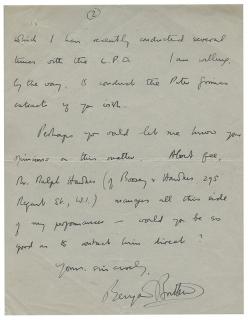 (2)
which I have recently conducted several
times with the L.P.O. I am willing,
by the way, to conduct the Peter Grimes
extracts if you wish.
Perhaps you could let me know your
opinions on this matter. About fee,
Mr. Ralph Hawkes (of Boosey & Hawkes, 295
Regent St., W.1.) manages all this side
of my performances — would you be so
good as to contact him direct?
Yours sincerely,
Benjamin Britten